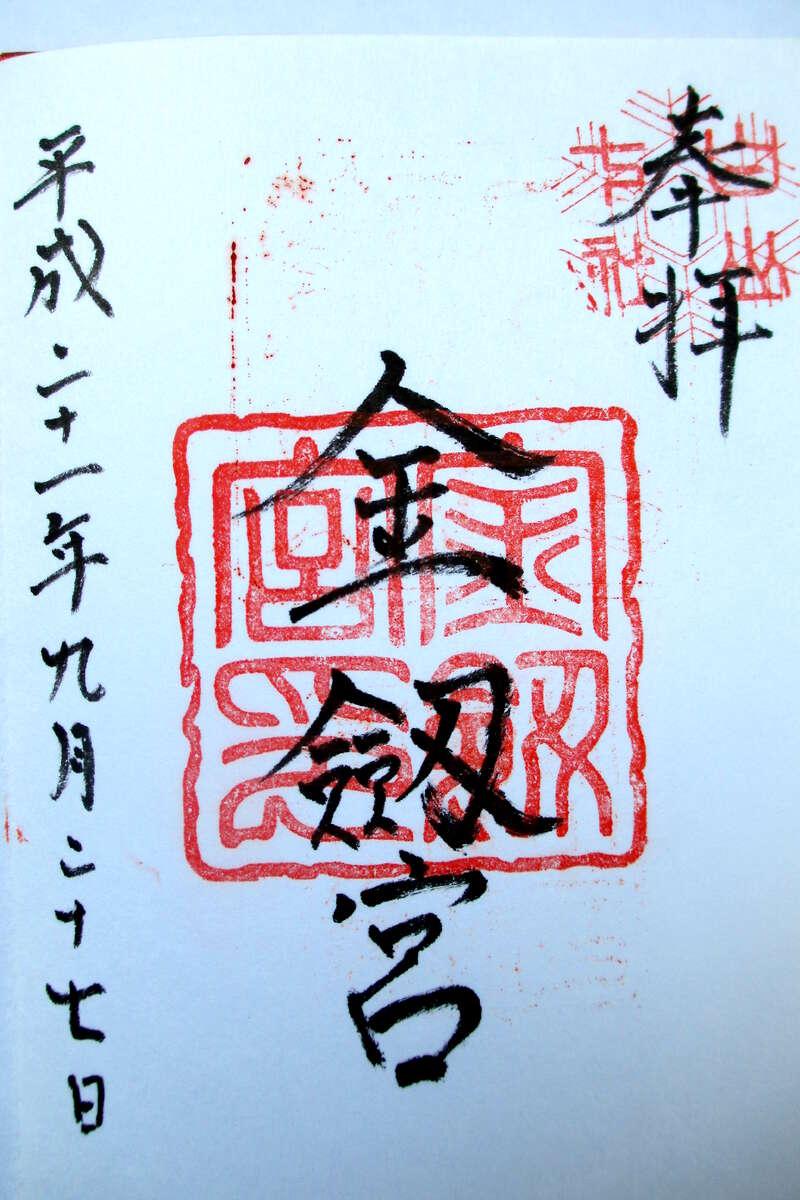 奉拝
白山
有社
金劔宮
平成二十一年九月二十七日